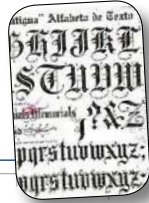 antigua" Alfabeto de Texto
GHIJKL
STUVW
Memorials
?&Z
pqrstuvwxyz;
pqrstuvwxyz;